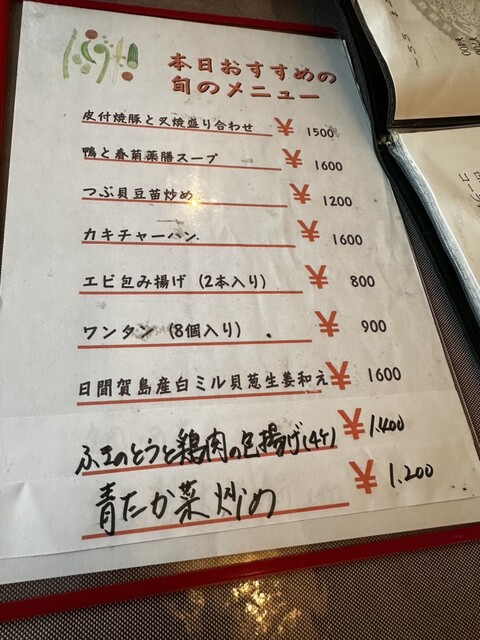 本日おすすめの
旬のメニュー
皮付焼豚と叉焼盛り合わせ ¥ 1500
鴨と春菊薬膳スープ ¥ 1600
つぶ貝豆苗炒め ¥ 1200
カキチャーハン ¥ 1600
エビ包み揚げ (2本入り) ¥ 800
ワンタン (8個入り) ¥ 900
日間賀島産白ミル貝葱生姜和え ¥ 1600
ふきのとうと鶏肉の包揚げ(4ケ) ¥ 1.400
青たか菜炒め ¥ 1.200